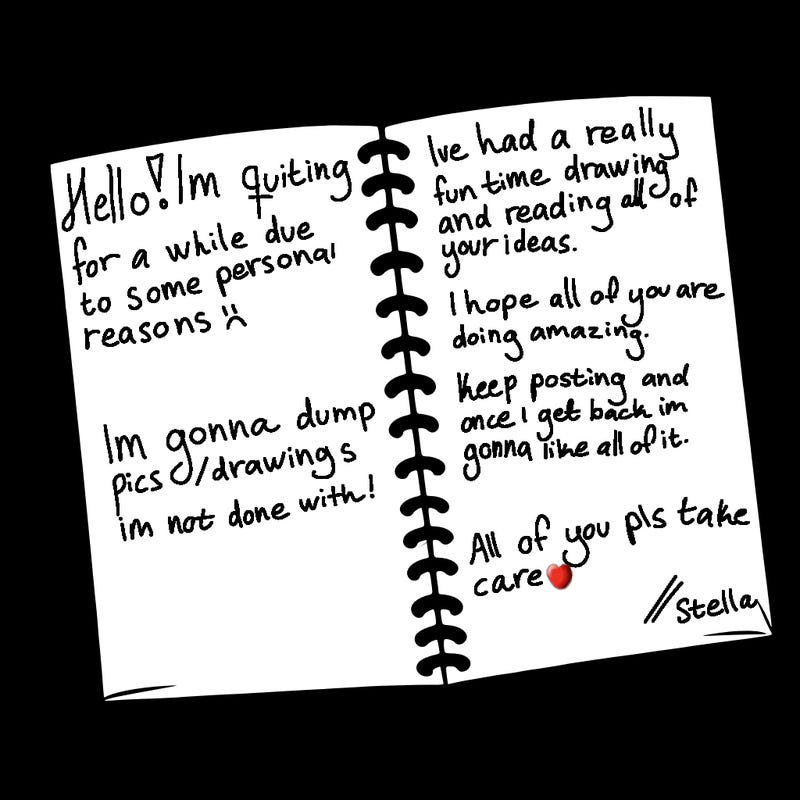 Hello! Im quiting
for a while due
to some personal
reasons :(
Im gonna dump
pics/drawings
im not done with!
Ive had a really
fun time drawing
and reading all of
your ideas.
I hope all of you are
doing amazing.
Keep posting and
once I get back im
gonna like all of it.
All of you pls take
care❤️
//Stella